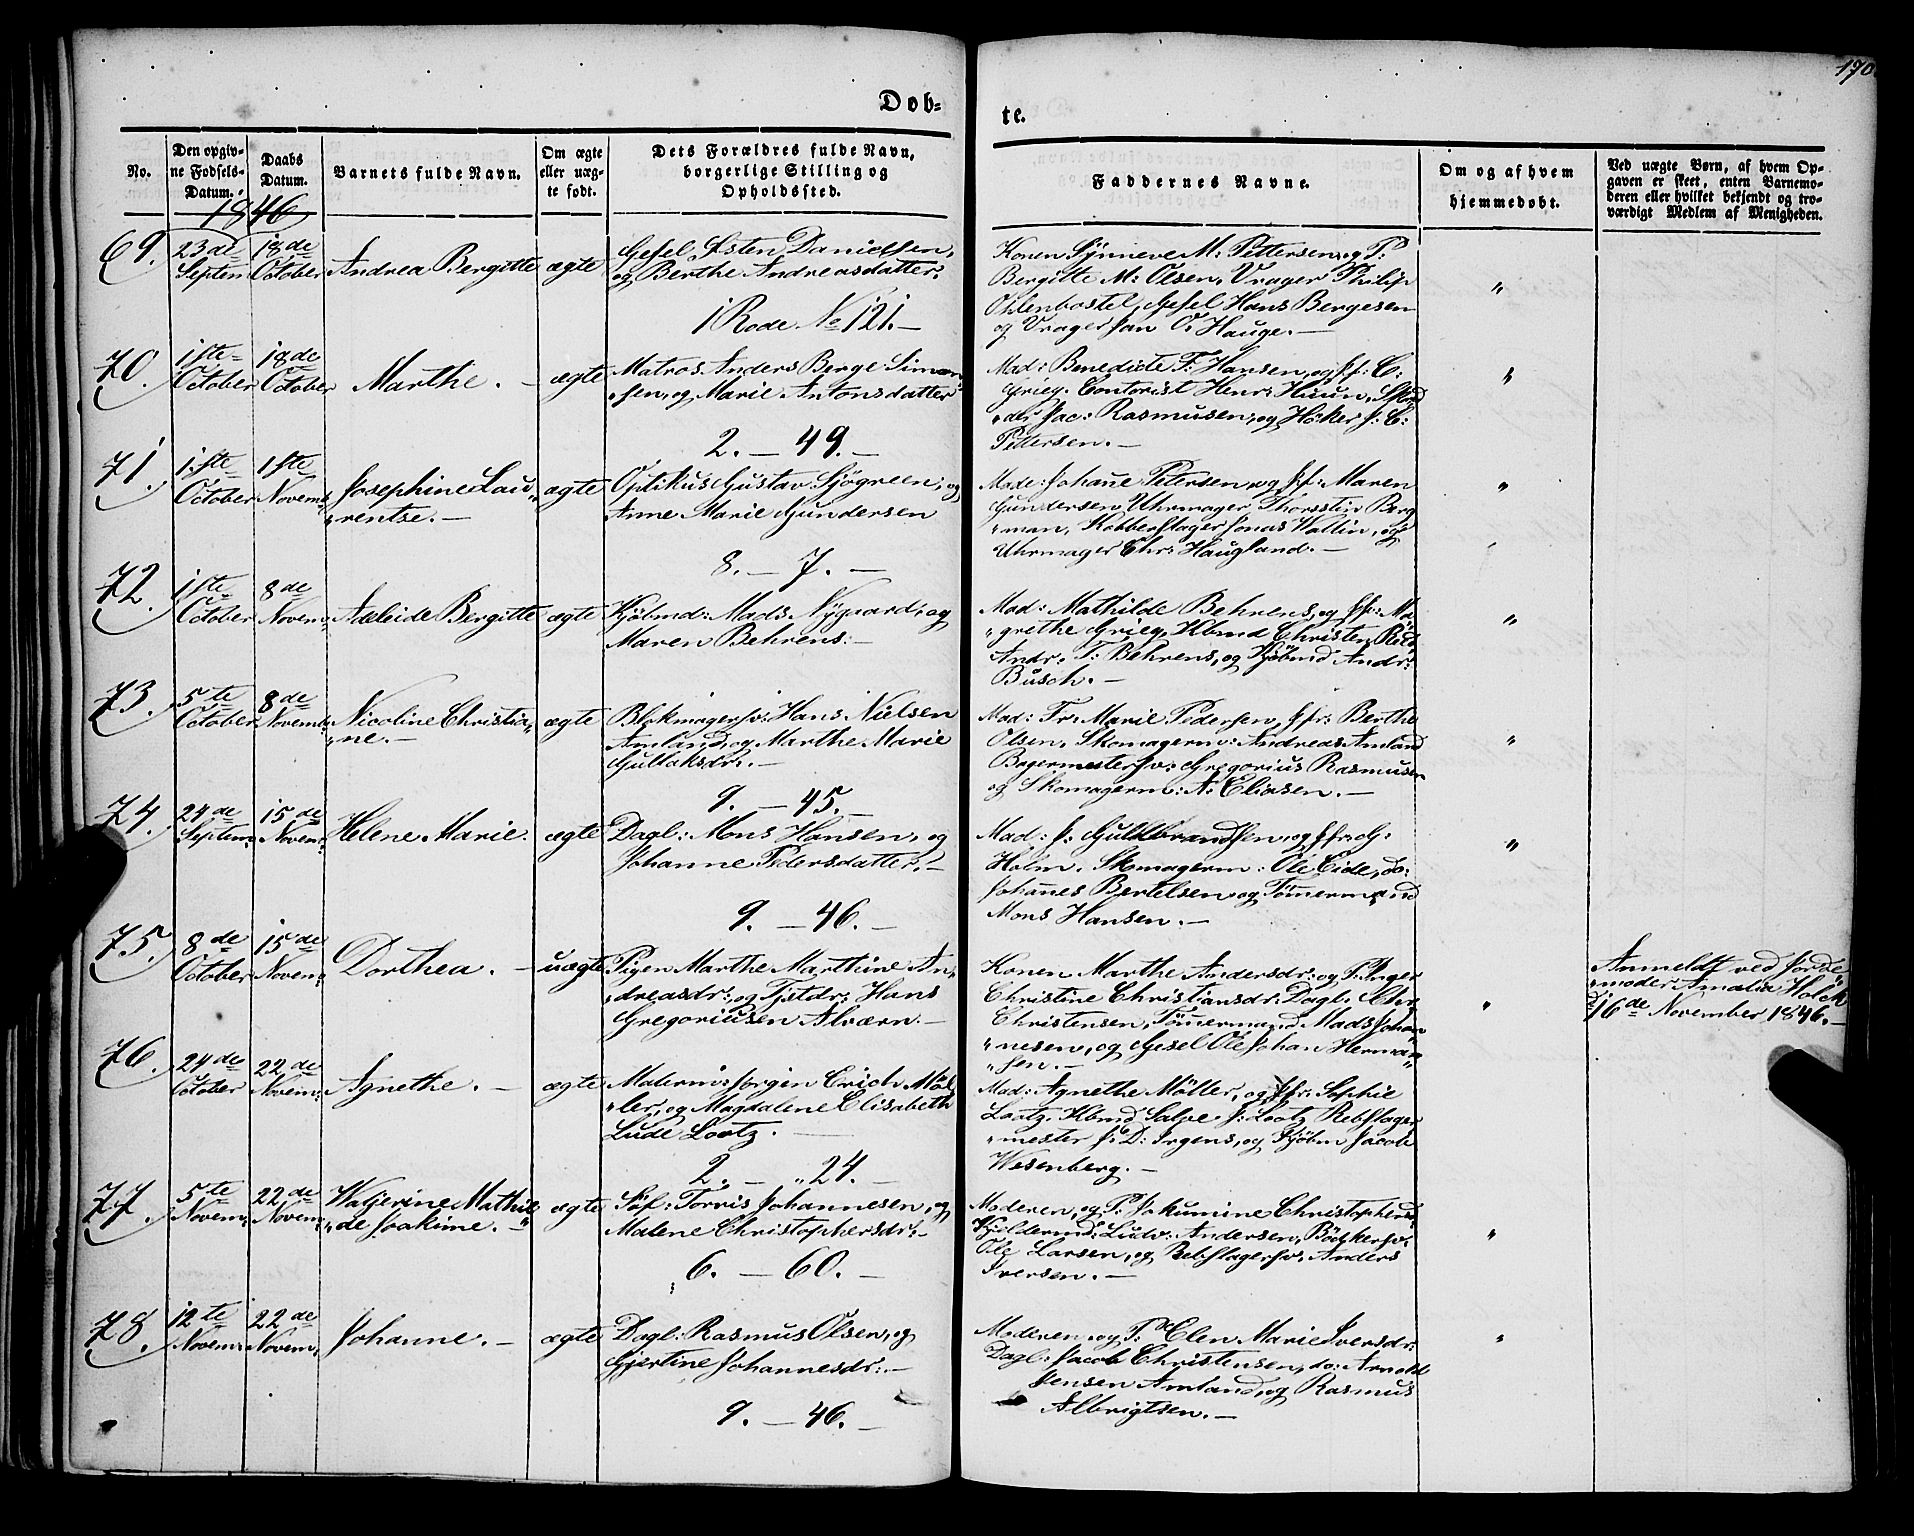 170
Døb-
te.
No.
Den opgiv-
ne Fødsels-
Datum.
Daabs
Datum.
Barnets fulde Navn.
Om ægte
eller uæg-
te født.
Dets Forældres fulde Navn,
borgerlige Stilling og
Opholdssted.
Faddernes Navne.
Om og af hvem
hjemmedøbt.
Ved uægte Børn, af hvem Op-
gaven er skeet, enten Barnemo-
deren eller hvilket bekjendt og tro-
værdigt Medlem af Menigheden.
1846
69.
23de
Septem
18de
October
Andrea Bergitte
ægte
Gesel Østen Danielsen,
og Berthe Andreasdatter.
1 Rode No 121.-
Konen Synneve M: Pettersen, og P:
Bergitte M: Olsen, Vrager Philip
Ohlenbostel, Gesel Hans Bergesen
og Vrager Jan O. Hauge.-
"
70.
1ste
October
18de
October
Marthe.-
ægte
Matros Anders Berge Simon-
sen, og Marie Antonsdatter
2.- 49.-
Mad: Benedicte F: Hansen, og Jf: C:
Grieg, Contorist Henr: Huun,
Jac: Rasmusen, og Høker J: C:
Pettersen.-
"
71.
1ste
October
1ste
Novemb
Josephine Lau-
rentse.-
ægte
Optikus Gustav Sjøgreen, og
Anne Marie Gundersen
8.- 7.-
Mad: Johane Petersen, og Jf: Maren
Gundersen, Uhrmager Thorsten Berg-
man, Kobberslager Jonas Wallin, og
Uhrmager Chr: Haugland.-
"
72.
1ste
October
8de
Novem:
Adeleide Bergitte
ægte
Kjøbmd: Mads Nygaard, og
Maren Behrens.-
Mad: Mathilde Behrens, og Jfr: Ma-
grethe Grieg, Kbmd Christen
Andr. T: Behrens, og Kjøbmd Andr:
Busch.-
"
73.
5te
October
8de
Novemb:
Nicoline Christia-
ne.-
ægte
Blokmagersv: Hans Nielsen
Amland, og Marthe Marie
Gullaksdr:.-
9.- 45.-
Mad: Fr: Marie Pedersen, Jfr: Berthe
Olsen, Skomagerm: Andreas Amland
Bagermestersv: Gregorius Rasmusen
og Skomagerm: A: Eliasen.-
"
74.
24de
Septem:
15de
Novem:
Helene Marie.
ægte
Dagl: Mons Hansen, og
Johanne Pedersdatter.-
9.- 46.-
Mad: J: Gulbrandsen, og Jfr: G:
Holm, Skomagerm: Ole Eide, do:
Johanes Bertelsen, og Tømermand
Mons Hansen.-
"
75.
8de
October
15de
Novem:
Dorthea.-
uægte
Pigen Marthe Marthine An-
dreasdr: og Tjstdr: Hans
Gregoriusen Alværn.-
Konen Marthe Andersdr: og P: Inger
Christine Christiansdr: Dagl: Chr
Christensen, Tømermand Mads Johan-
nesen, og Gesel Ole Johan Herman-
sen.-
"
Anmeldt ved Jorde-
moder Amalia Holck
d 16de November 1846.-
76.
24de
October
22de
Novem:
Agnethe.-
ægte
Malerm: Jørgen Erich Møl-
ler, og Magdalene Elisabeth
Lude Lootz.-
2.- "24.-
Mad: Agnethe Møller, og Jfr: Sophie
Lootz, Kbmd J: Lootz, Rebslager-
mester J: D: Irgens, og Kjøbm Jacob
Wesenberg.-
77.
5te
Novem:
22de
Novem:
Waljerine Mathil-
de Joakime.-
ægte
Søf: Torris Johannesen, og
Malene Christophersdr:-
6.- 60.-
Moderen, og P: Jakumine Christophersd:
Kjeldermd: Ludv: Andersen, Bødkersv:
Ole Larsen, og Rebslagersv: Anders
Iversen.-
"
78.
12te
Novem:
22de
Novem:
Johanne.-
ægte
Dagl: Rasmus Olsen, og
Gjertine Johannesdr:-
9.- 46.-
Moderen, og P: Elen Marie Iversdr:
Dagl: Jacob Christensen, do: Arnold
Jensen Amland, og Rasmus
Albrigtsen.-
"